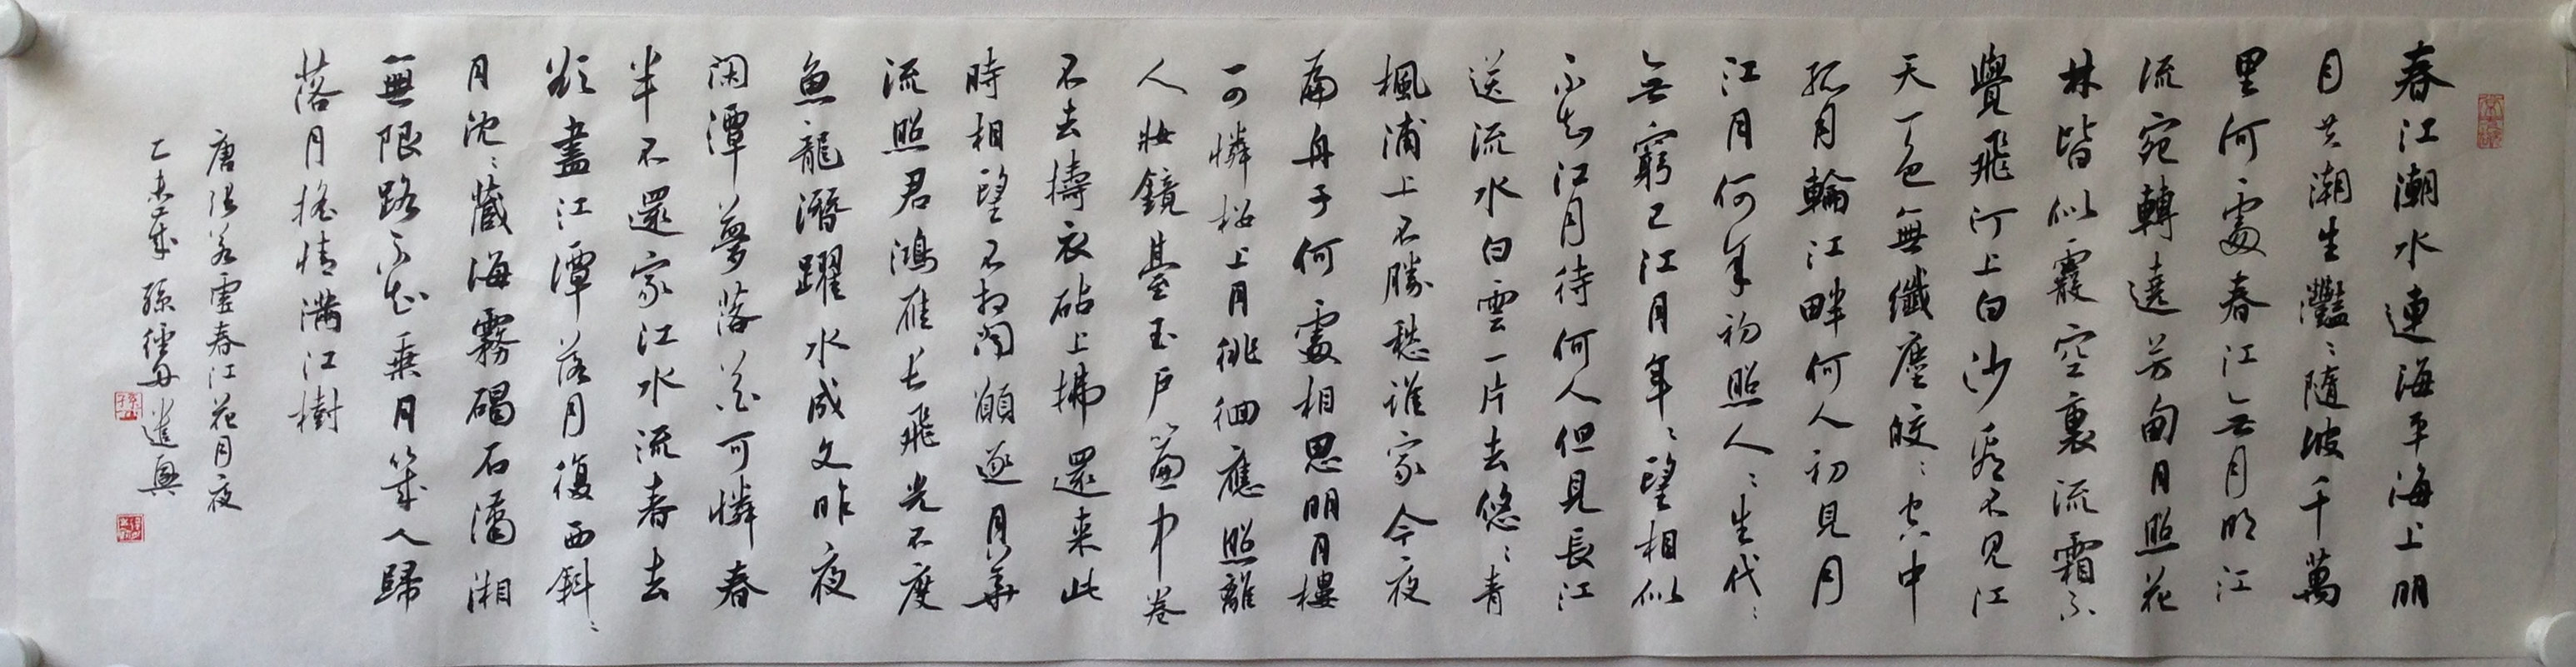 春江潮水連海平海上明
月共潮生灧〻隨波千萬
里何處春江無月明江
流宛轉遶芳甸月照花
林皆似霰空裏流霜不
覺飛汀上白沙看不見江
天一色無纖塵皎〻空中
孤月輪江畔何人初見月
江月何年初照人〻生代〻
無窮已江月年〻望相似
不知江月待何人但見長江
送流水白雲一片去悠〻青
楓浦上不勝愁誰家今夜
扁舟子何處相思明月樓
可憐樓上月徘徊應照離
人妝鏡臺玉戶簾中卷
不去擣衣砧上拂還來此
時相望不相聞願逐月華
流照君鴻雁長飛光不度
魚龍潛躍水成文昨夜
閑潭夢落花可憐春
半不還家江水流春去
欲盡江潭落月復西斜〻
月沈〻藏海霧碣石瀟湘
無限路不知乘月幾人歸
落月搖情滿江樹
唐張若虛春江花月夜
乙未歲孫遣興